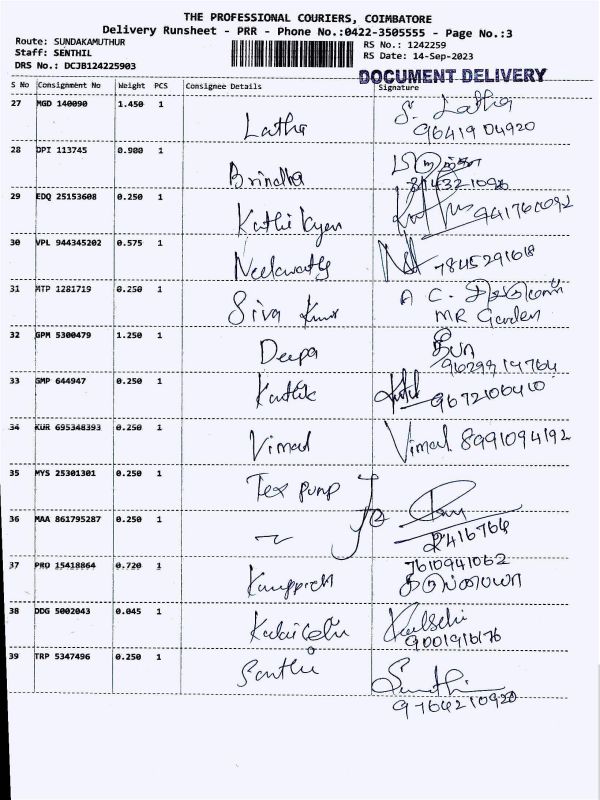 THE PROFESSIONAL COURIERS, COIMBATORE
Delivery Runsheet - PRR - Phone No.:0422-3505555 - Page No.:3
Route: SUNDAKAMUTHUR
Staff: SENTHIL
DRS No.: DCJB124225903
RS No.: 1242259
RS Date: 14-Sep-2023
DOCUMENT DELIVERY
S No Consignment No Weight PCS Consignee Details Signature
27 MGD 140090 1.450 1 Latha S. Latha
9641904920
28 DPI 113745 0.900 1 Brindha
29 EDQ 25153608 0.250 1 941761092
30 VPL 944345202 0.575 1 7845291618
31 MTP 1281719 0.250 1 Siva Kumar A C.
MR Garden
32 GPM 5300479 1.250 1 Deepa தீபா
9629914764
33 GMP 644947 0.250 1 Karthik
9672106410
34 KUR 695348393 0.250 1 Vimal Vimal 8091094192
35 MYS 25301301 0.250 1 Tex pump
36 MAA 861795287 0.250 1
37 PRO 15418864 0.720 1 7610941062
38 DDG 5002043 0.045 1
9001916176
39 TRP 5347496 0.250 1
9764210920